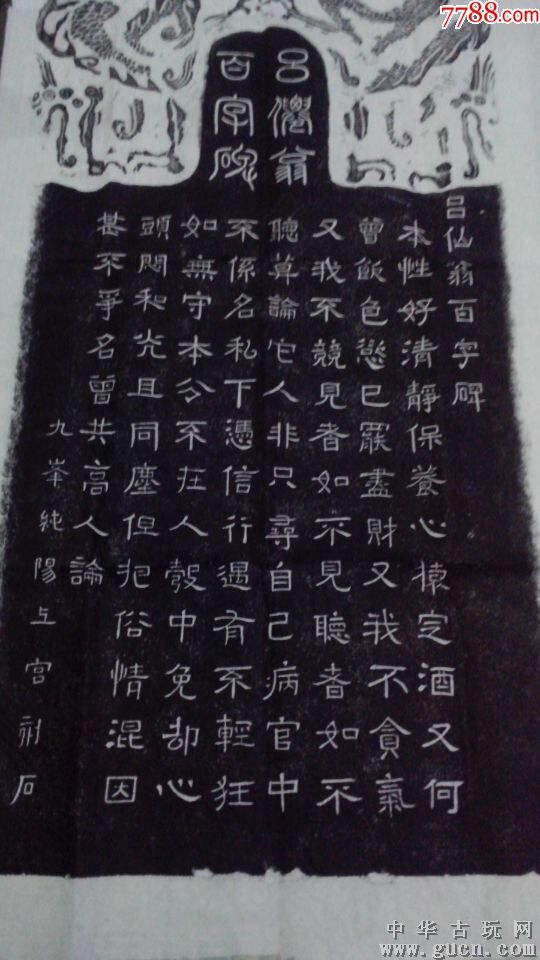 7788.com
呂僊翁
百字碑
呂仙翁百字碑
本性好清靜保養心猿定酒又何
曾飲色慾已罷盡財又我不貪氣
又我不競見者如不見聽者如不
聽莫論它人非只尋自己病官中
不係名私下憑信行遇有不輕狂
如無守本分不在人彀中免却心
頭悶和光且同塵但犯俗情混因
甚不爭名曾共高人論
九峯純陽上宮刻石
中华古玩网
www.gucn.com